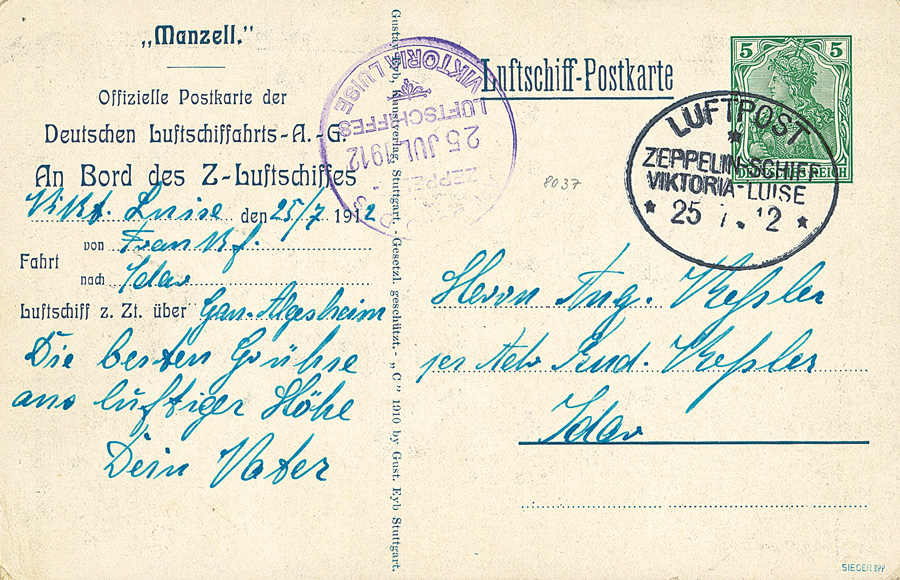 „Manzell.“
Offizielle Postkarte der
Deutschen Luftschiffahrts-A.-G.
An Bord des Z-Luftschiffes
Vikt. Luise den 25/7 1912
Fahrt
von Frankf.
nach Idar
Luftschiff z. Zt. über Gau-Algesheim
Die besten Grühse
aus luftiger Höhe
Dein Vater
Gustav Eyb, Kunstverlag, Stuttgart. - Gesetzl. geschützt. - „C“ 1910 by Gust. Eyb Stuttgart.
VIKTORIA LUISE
LUFTSCHIFFES
25 JUL 1912
ZEPPEL
Luftschiff-Postkarte
5 5
DEUTSCHES REICH
LUFTPOST
ZEPPELIN-SCHIFF
VIKTORIA-LUISE
* 25 7. 12 *
8037
Herrn Aug. Keßler
per Adr. Rud. Keßler
Idar
SIEGER